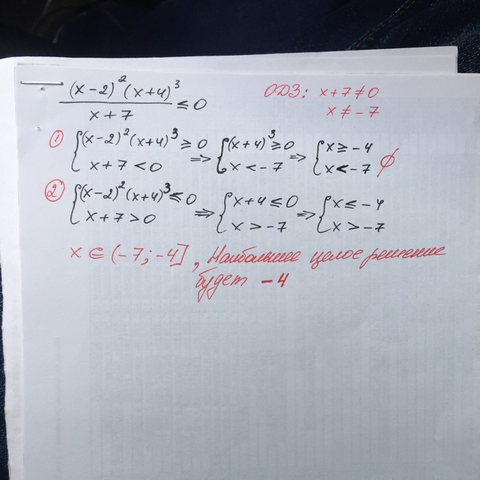 (x-2)²(x+4)³ / (x+7) ≤ 0
ОДЗ: x+7≠0
x≠-7
① { (x-2)²(x+4)³ ≥ 0 ; x+7<0 ⇒ { (x+4)³ ≥ 0 ; x<-7 ⇒ { x≥-4 ; x<-7 ∅
② { (x-2)²(x+4)³ ≤ 0 ; x+7>0 ⇒ { x+4≤0 ; x>-7 ⇒ { x≤-4 ; x>-7
x∈(-7;-4], Наибольшее целое решение
будет -4